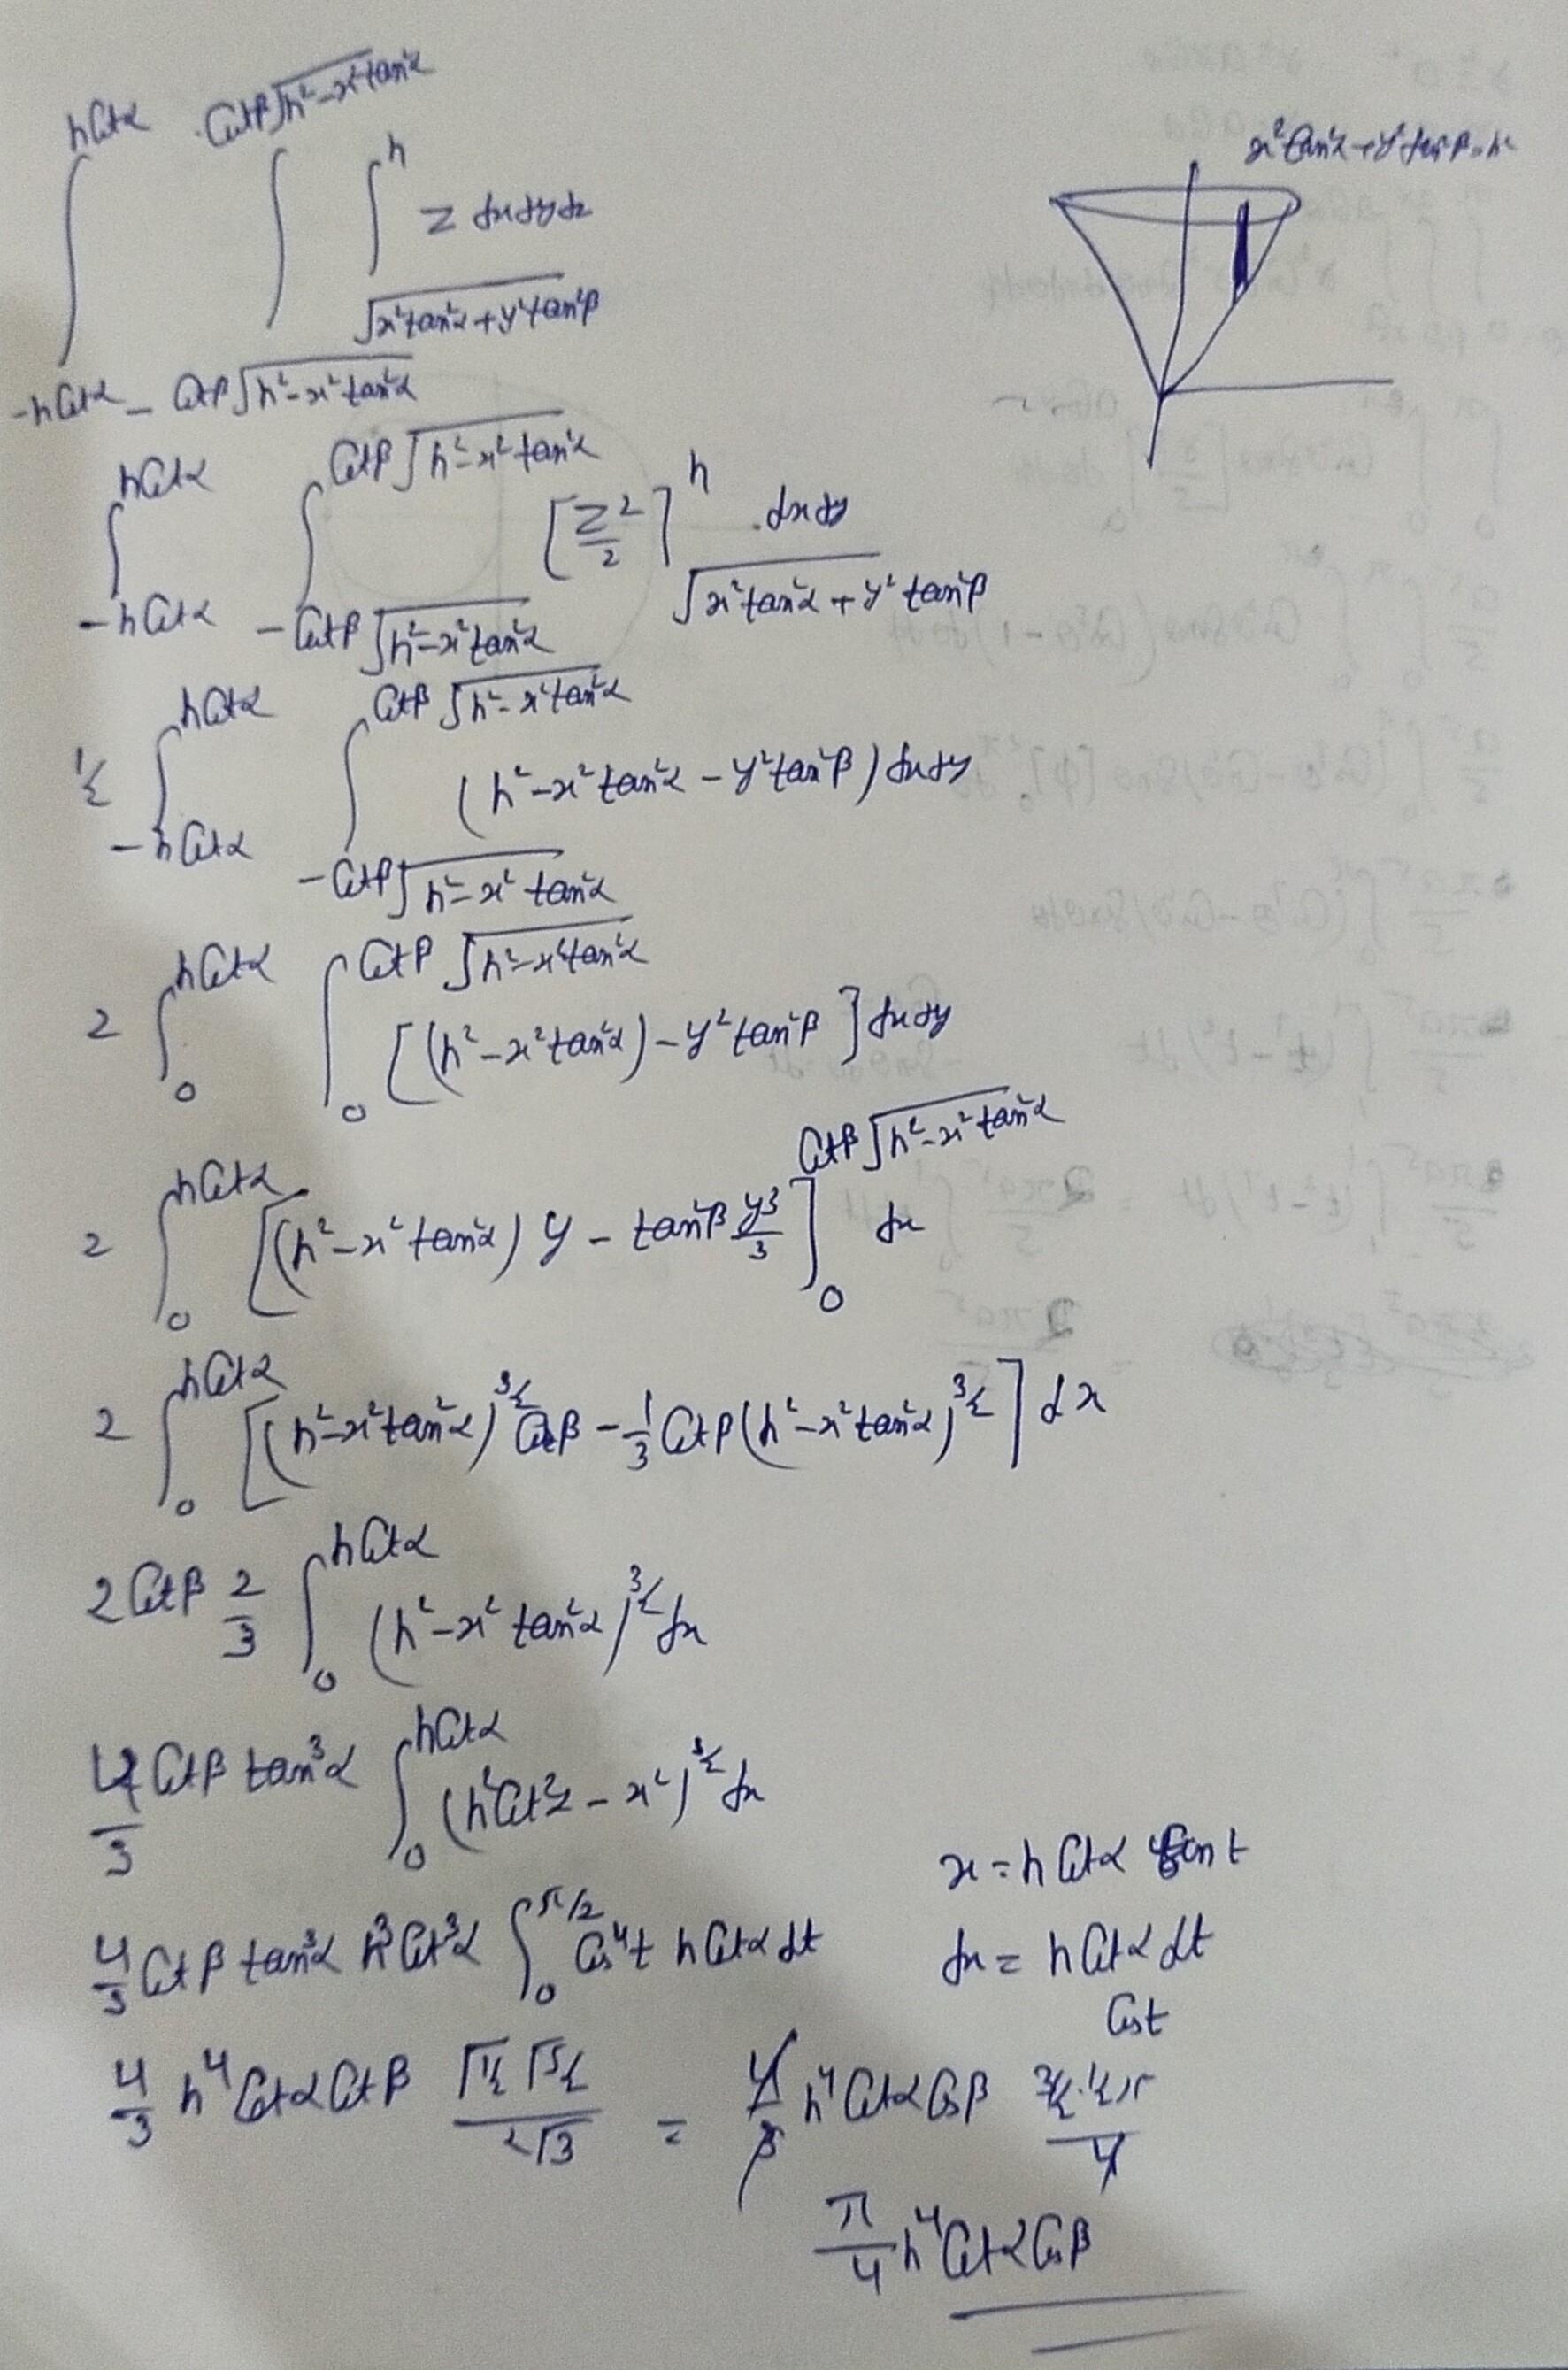 x²tan²α + y²tan²β = h²
∫_{-hCotα}^{hCotα} ∫_{-Cotβ√(h²-x²tan²α)}^{Cotβ√(h²-x²tan²α)} ∫_{√(x²tan²α+y²tan²β)}^{h} z dxdydz
∫_{-hCotα}^{hCotα} ∫_{-Cotβ√(h²-x²tan²α)}^{Cotβ√(h²-x²tan²α)} [z²/2]_{√(x²tan²α+y²tan²β)}^{h} . dxdy
½ ∫_{-hCotα}^{hCotα} ∫_{-Cotβ√(h²-x²tan²α)}^{Cotβ√(h²-x²tan²α)} (h²-x²tan²α - y²tan²β) dxdy
2 ∫_{0}^{hCotα} ∫_{0}^{Cotβ√(h²-x²tan²α)} [(h²-x²tan²α) - y²tan²β] dxdy
2 ∫_{0}^{hCotα} [(h²-x²tan²α) y - tan²β y³/3]_{0}^{Cotβ√(h²-x²tan²α)} dx
2 ∫_{0}^{hCotα} [(h²-x²tan²α)^{3/2} Cotβ - 1/3 Cotβ (h²-x²tan²α)^{3/2}] dx
2Cotβ 2/3 ∫_{0}^{hCotα} (h²-x²tan²α)^{3/2} dx
4/3 Cotβ tan³α ∫_{0}^{hCotα} (h²Cot²α - x²)^{3/2} dx
x = hCotα Sint
4/3 Cotβ tan³α h³Cot³α ∫_{0}^{π/2} Cos⁴t hCotα dt
dx = hCotα dt
Cost
4/3 h⁴ Cotα Cotβ Γ½ Γ5/2 / 2Γ3 = 4/3 h⁴ Cotα Cosβ 3/2·½π / 4
π/4 h⁴ Cotα Cosβ